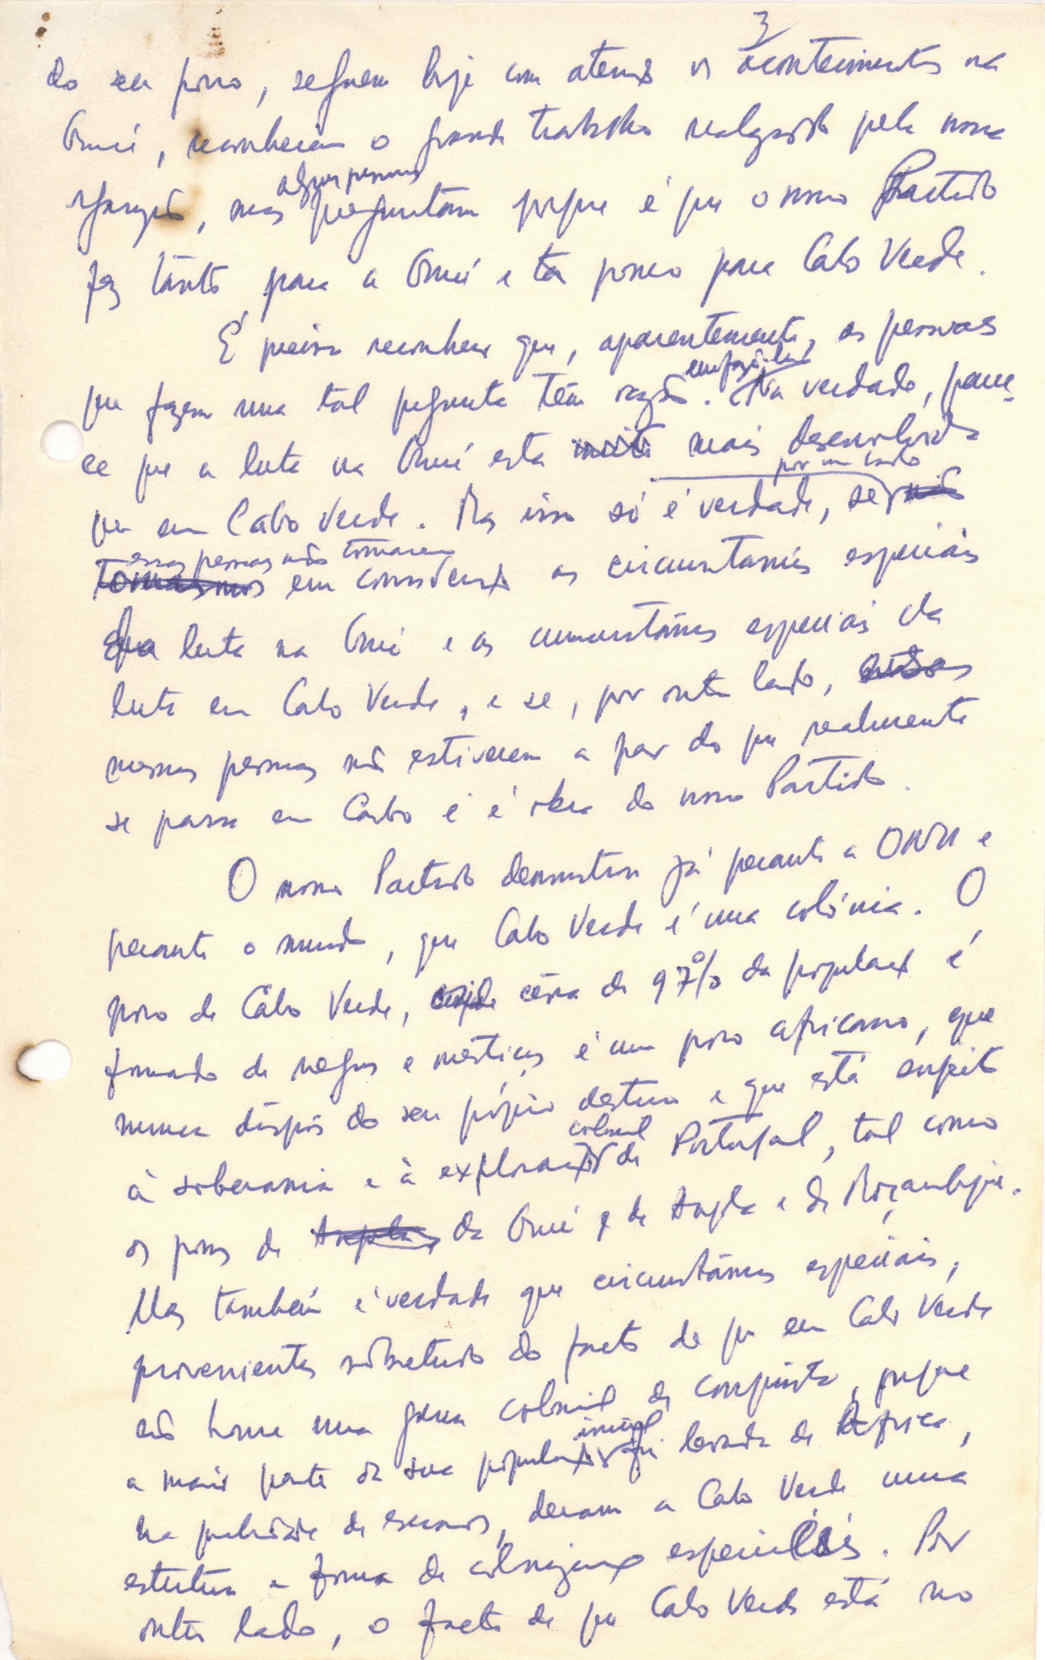 3
do seu povo, seguem hoje com atenção os acontecimentos na
Guiné, reconhecem o grande trabalho realizado pela nossa
algumas pessoas
organização, mas perguntam porque é que o nosso Partido
fez tanto para a Guiné e tão pouco para Cabo Verde.
É preciso reconhecer que, aparentemente, as pessoas
que fazem uma tal pergunta têm razão em fazê-la. Na verdade, pare-
ce que a luta na Guiné está mais desenvolvida
por um lado
que em Cabo Verde. Mas isso só é verdade, se
essas pessoas não tomarem
tomarmos em consideração as circunstancias especiais
da luta na Guiné e as circunstâncias especiais da
luta em Cabo Verde, e se, por outro lado,
mesmas pessoas não estiverem a par do que realmente
se passa em Cabo e é obra do nosso Partido.
O nosso Partido demonstrou já perante a ONU e
perante o mundo, que Cabo Verde é uma colónia. O
povo de Cabo Verde, cerca de 97% da população é
formado de negros e mestiços é um povo africano, que
nunca dispôs do seu próprio destino e que está sujeito
colonial
à soberania e à exploração de Portugal, tal como
os povos de Angola da Guiné e de Angola e de Moçambique.
Mas também é verdade que circunstâncias especiais,
provenientes sobretudo do facto de que em Cabo Verde
não houve uma guerra colonial de conquista, porque
inicial
a maior parte da sua população foi levada de África,
na qualidade de escravos, deram a Cabo Verde uma
estrutura e forma de colonização especiais. Por
outro lado, o facto de que Cabo Verde está no